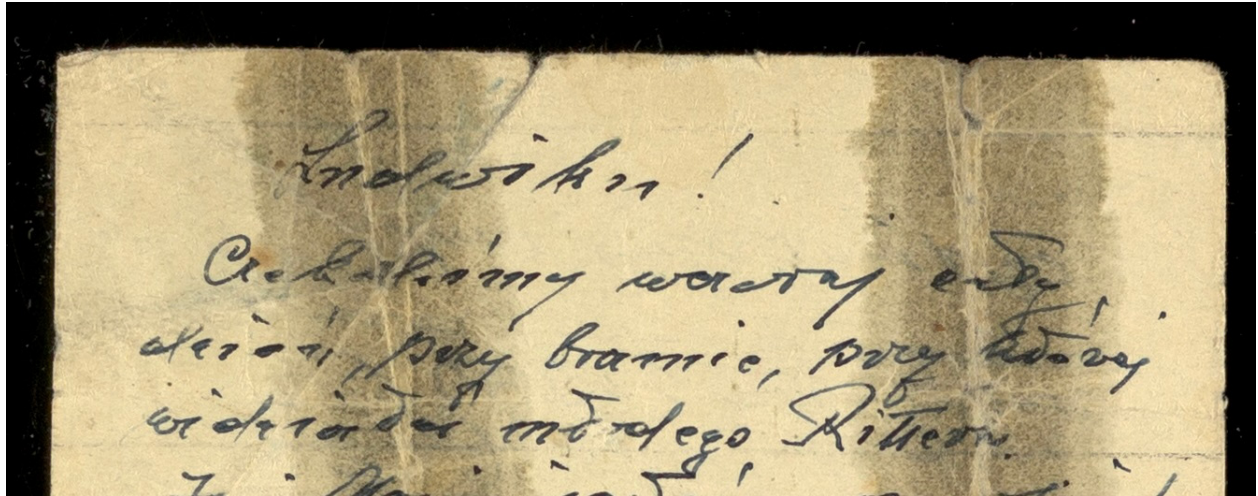 Ludwiku!
Czekaliśmy wczoraj cały
dzień, przy bramie, przy której
widziałaś młodego Rittera.